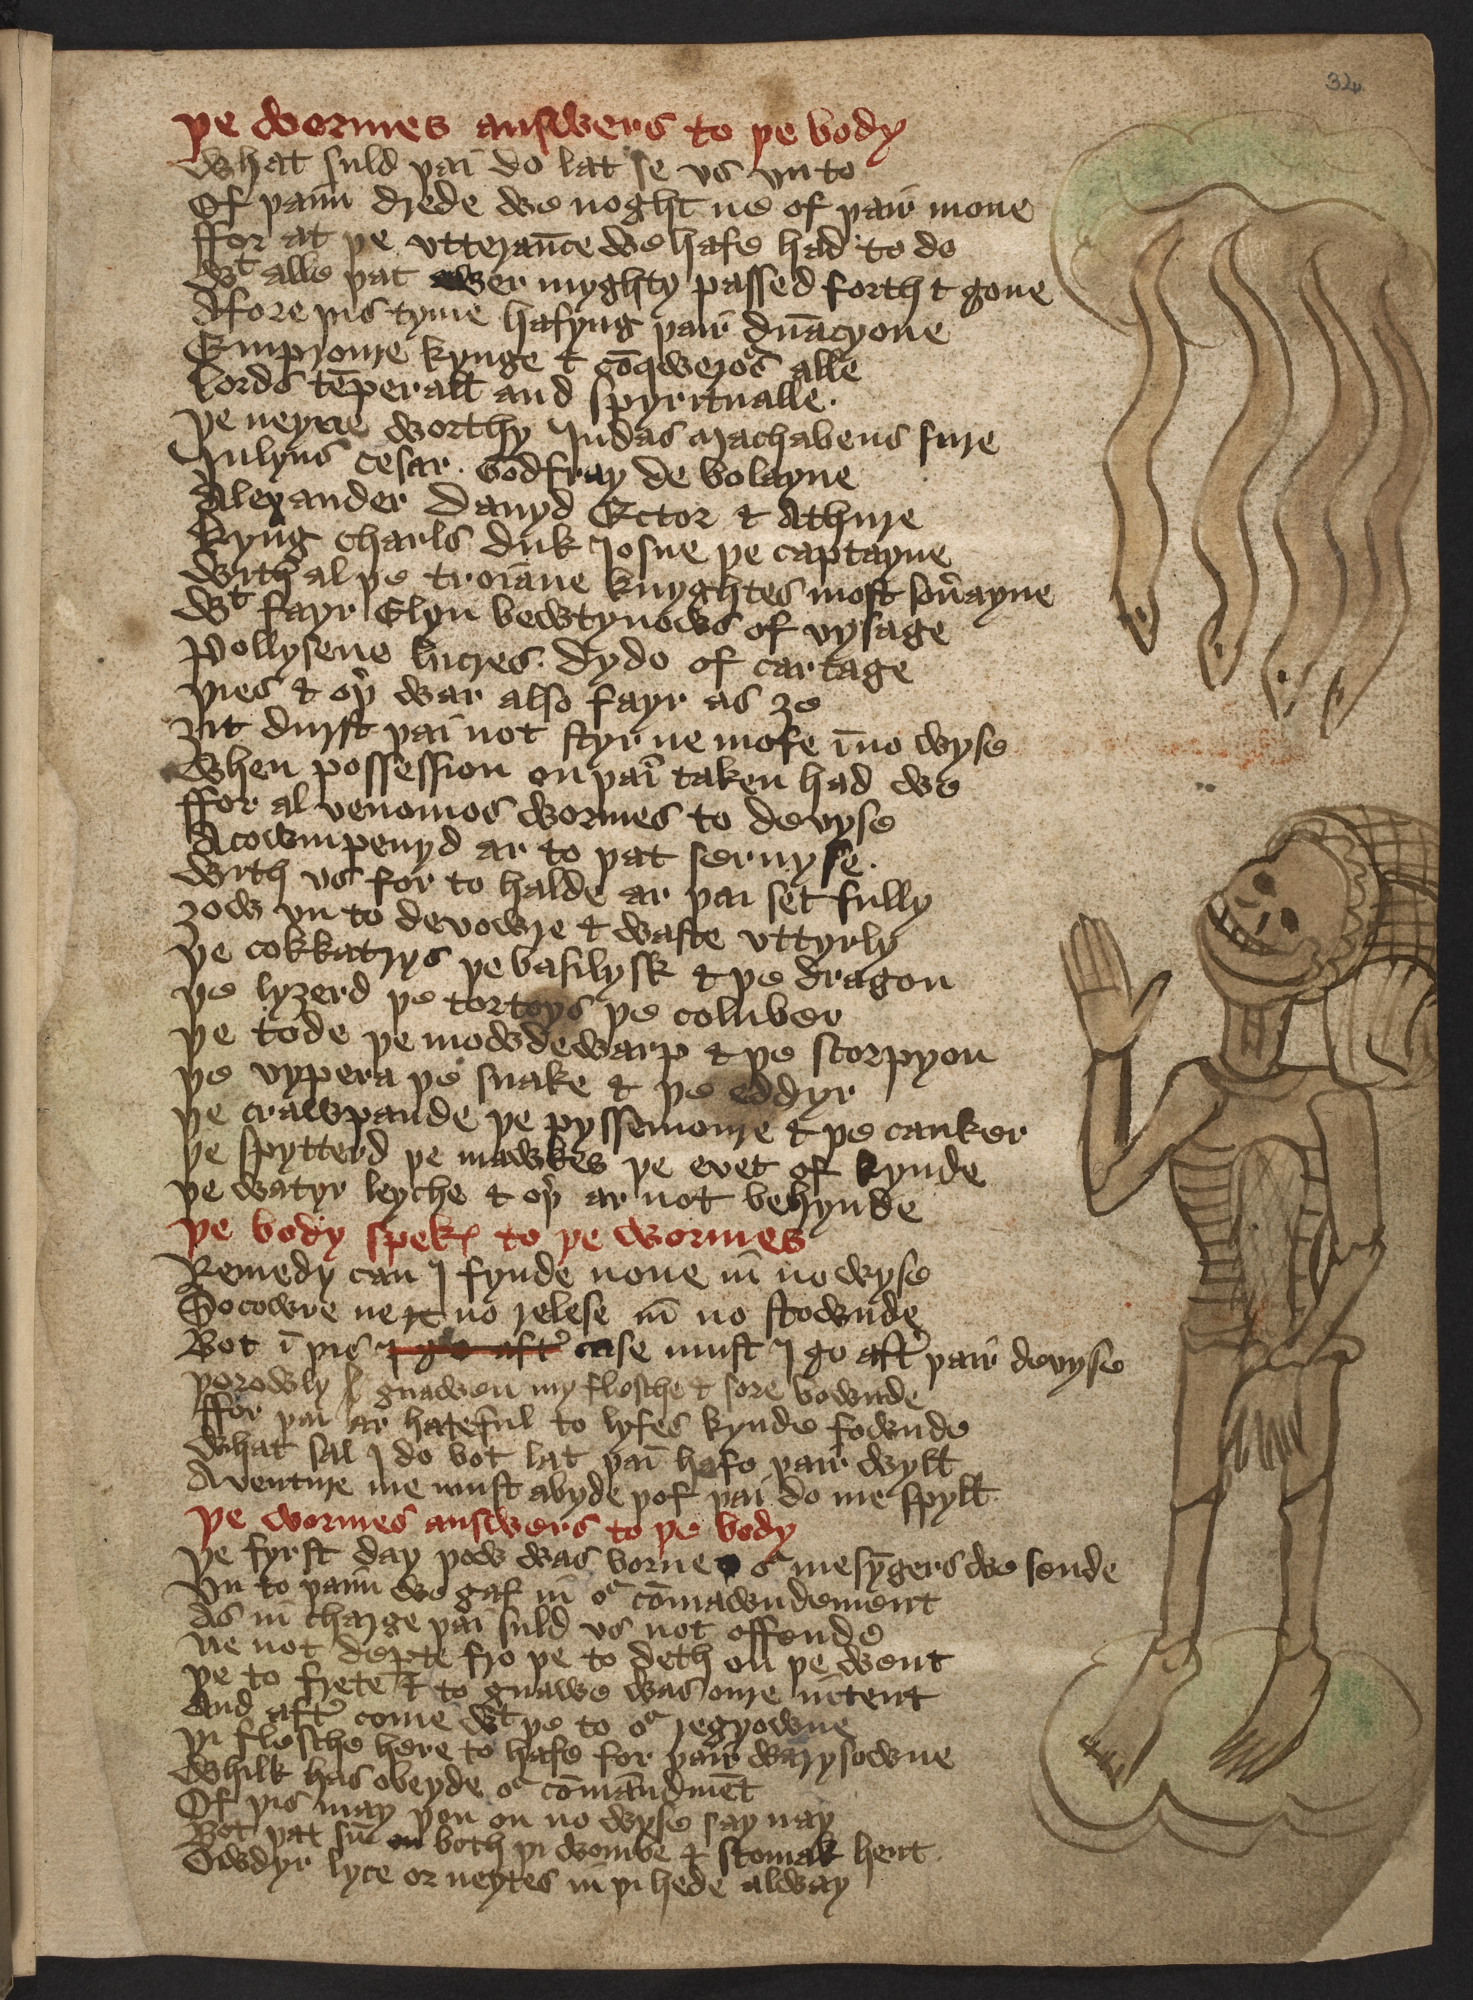 34
þe wormes answers to þe body
What suld þai do lat se vs vnto
Of þaim drede we noght ne of þair mone
ffor at þe vtteraunce we hafe had to do
Wt alle þat wer myghty passed forth & gone
Afore þis tyme hafyng þair dnacyone
Emprour kynge & coqweros alle
Lords teperall and spyritualle.
þe neyne worthy Judas machabeus sure
Julyus cesar. Godfray de bolayne
Alexander Dauyd Ector & Athure
Kyng charls duk Josue þe captayne
With al þe troiane knyghtes most souayne
Wt fayr Elyn bewtynows of vysage
Pollysene lucres. dydo of cartage
þies & oþ war also fayr as ȝe
ȝit durst þai not styr ne mofe i no wyse
When possession on þai taken had we
ffor al venomos wormes to devyse
Acowmpenyd ar to þat seruyse.
With vs for to halde ar þai set fully
ȝow vn to devowre & waste vttyrly
þe cokkatrys þe basilysk & þe dragon
þe lyȝerd þe tortoys þe coluber
þe tode þe mowdewarp & þe scorpyon
þe vypera þe snake & þe eddyr
þe crawpaude þe pyssemoure & þe canker
þe spytterd þe mawkes þe evet of kynde
þe watyr leyche & oþ ar not behynde
þe body spek to þe wormes
Remedy can I fynde none in no wyse
Socowre ne no relese in no stownde
Bot i þis I go aft case must I go aft þair devyse
þorowly gnawen my flesche & sore bownde
ffor þai ar hateful to lyfes kynde fownde
What sal I do bot lat þai hafe þair wyll
Aventure me must abyde þof þai do me spyll
þe wormes answers to þe body
þe fyrst day þow was borne or mesyngers we sende
Vn to þaim we gaf in or comawndement
As in charge þai suld vs not offende
Ne not depte fro þe to deth on þe went
þe to frete & to gnawe was oure intent
And aft come wt þe to or regyowne
þi flesche here to hafe for þair warysowne
Whilk has obeyde or comandmet
Of þis may þou on no wyse say nay
Bot þat su both þi wombe & stomak hent
Owdyr lyce or neytes in þi hede alway